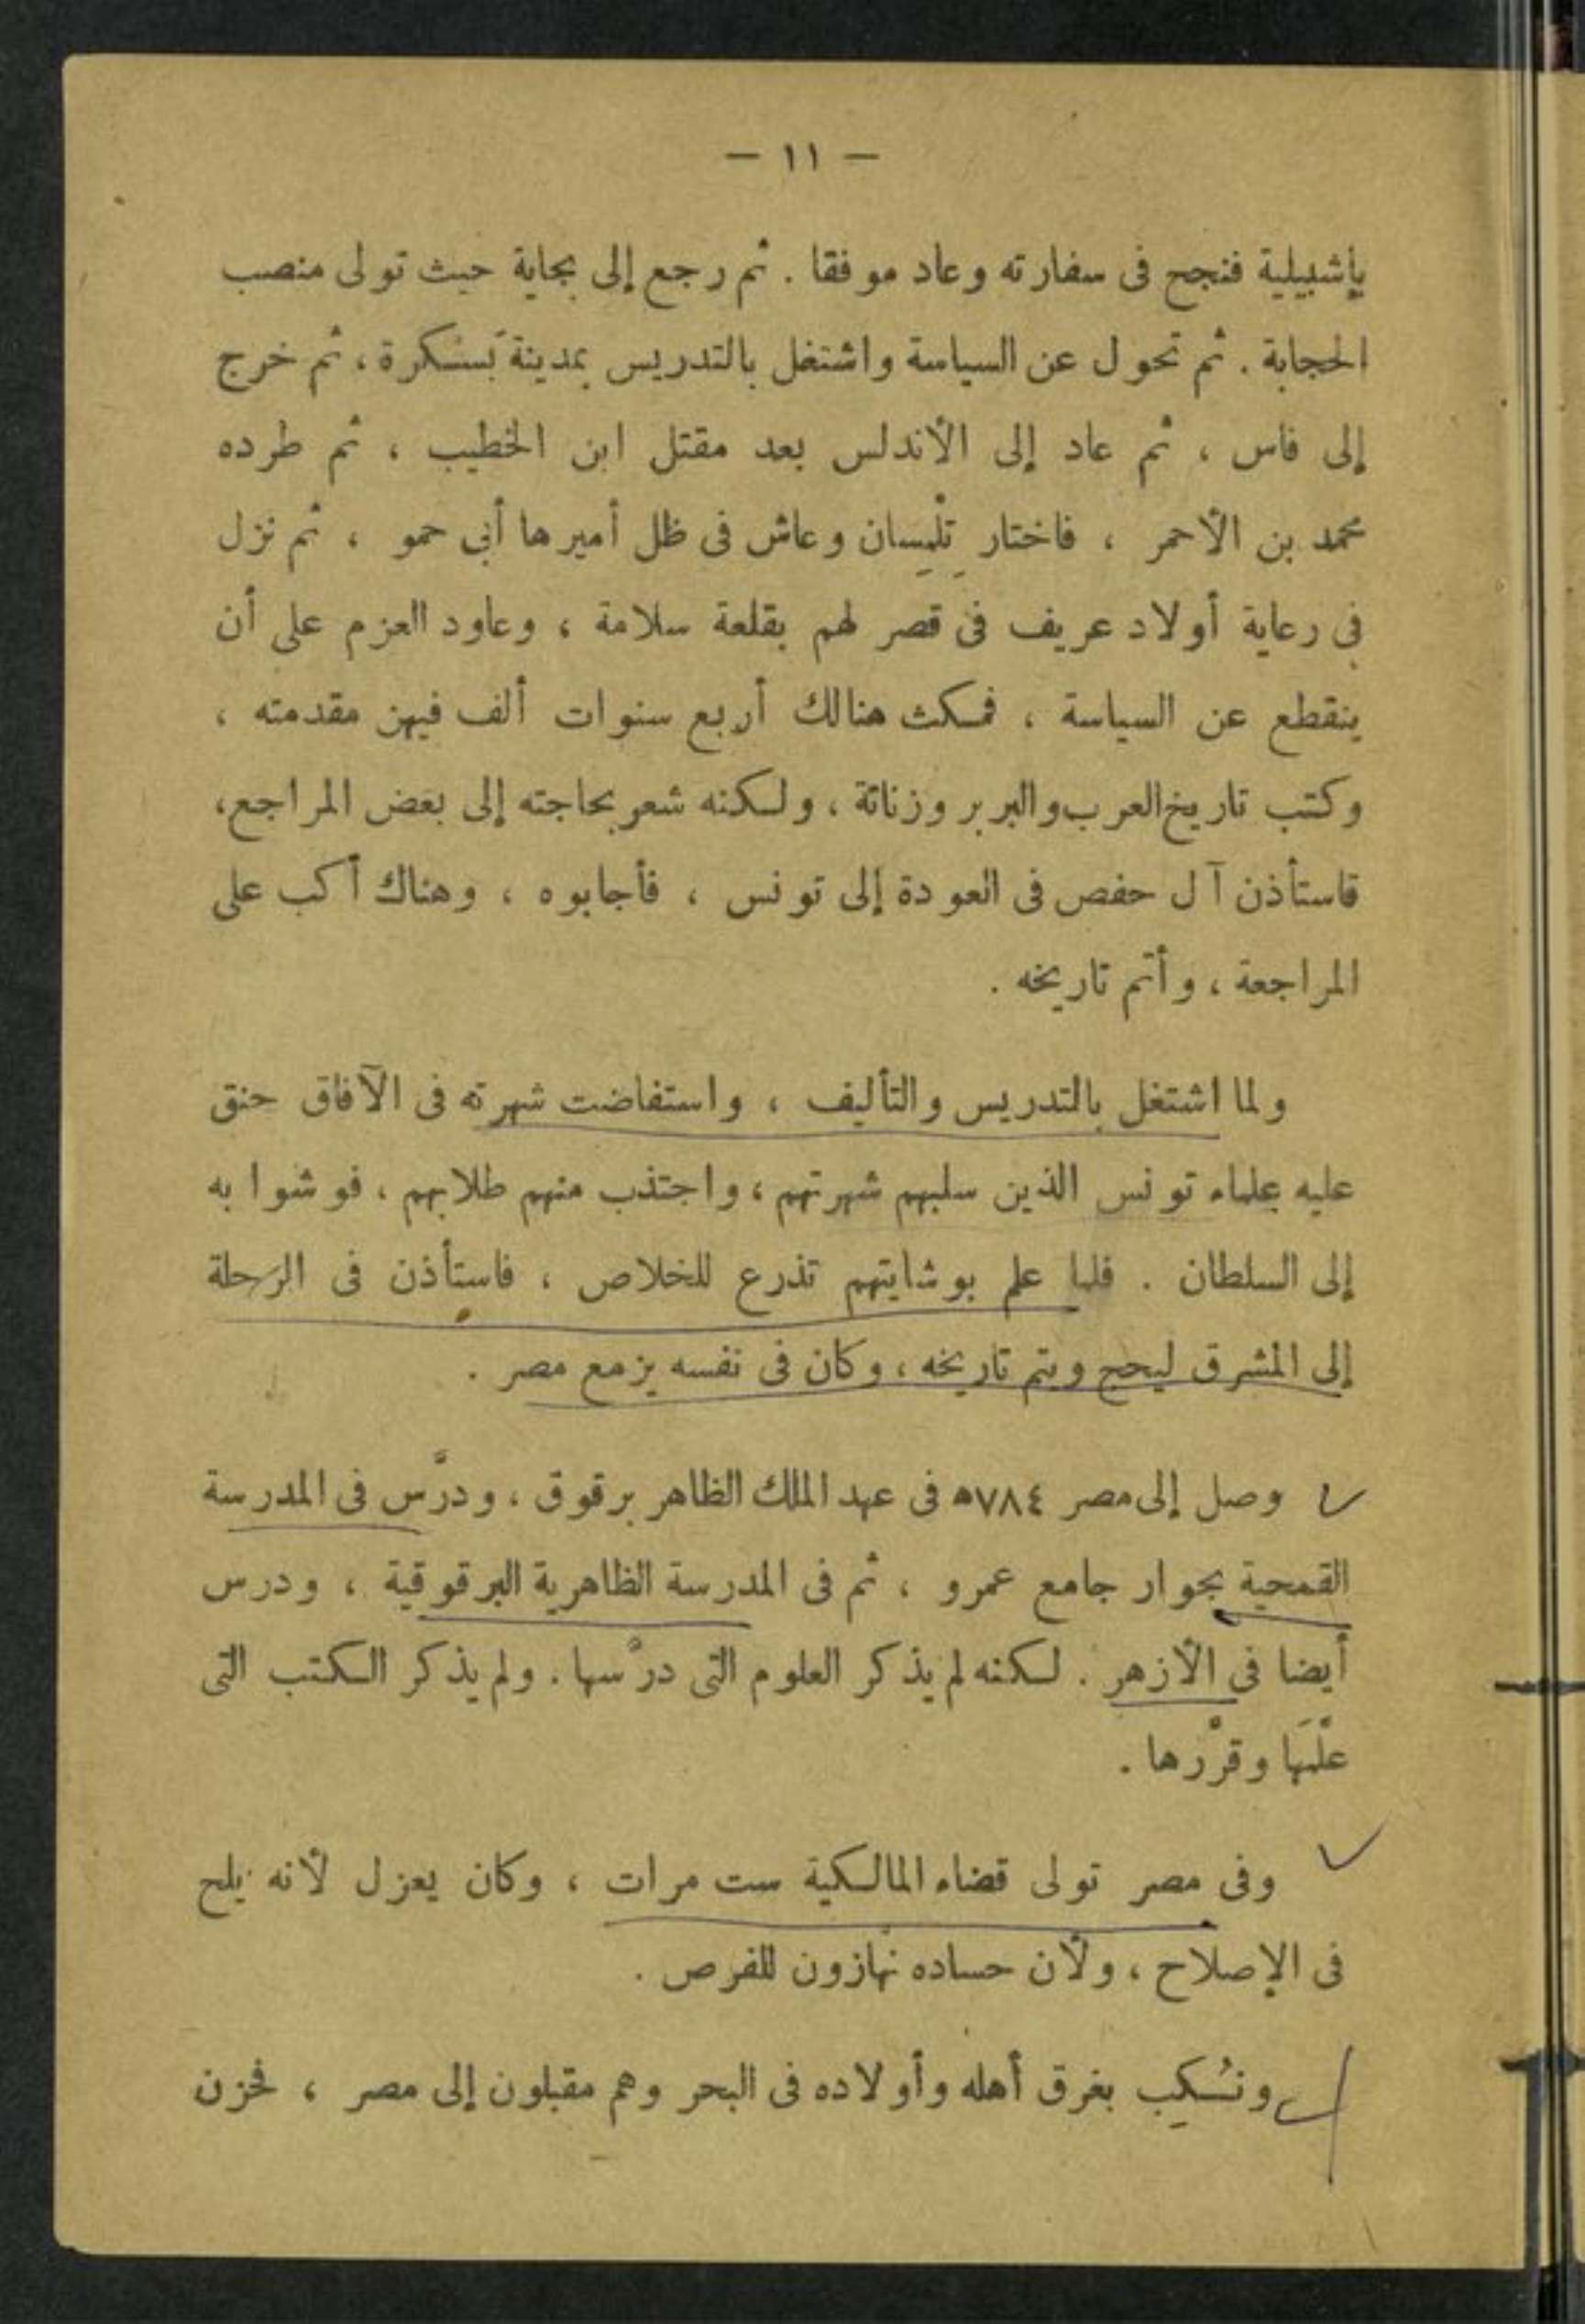 — ١١ —
بإشبيلية فنجح فى سفارته وعاد موفقا . ثم رجع إلى بجاية حيث تولى منصب
الحجابة . ثم تحول عن السياسة واشتغل بالتدريس بمدينة بَسْكرة ، ثم خرج
إلى فاس ، ثم عاد إلى الأندلس بعد مقتل ابن الخطيب ، ثم طرده
محمد بن الأحمر ، فاختار تِلْمِسان وعاش فى ظل أميرها أبى حمو ، ثم نزل
فى رعاية أولاد عريف فى قصر لهم بقلعة سلامة ، وعاود العزم على أن
ينقطع عن السياسة ، فمكث هنالك أربع سنوات ألف فيهن مقدمته ،
وكتب تاريخ العرب والبربر وزناتة ، ولكنه شعر بحاجته إلى بعض المراجع ،
فاستأذن آل حفص فى العودة إلى تونس ، فأجابوه ، وهناك أكب على
المراجعة ، وأتم تاريخه .
ولما اشتغل بالتدريس والتأليف ، واستفاضت شهرته فى الآفاق حنق
عليه علماء تونس الذين سلبهم شهرتهم ، واجتذب منهم طلابهم ، فوشوا به
إلى السلطان . فلما علم بوشايتهم تذرع للخلاص ، فاستأذن فى الرحلة
إلى المشرق ليحج ويتم تاريخه ، وكان فى نفسه يزمع مصر .
وصل إلى مصر ٧٨٤ه فى عهد الملك الظاهر برقوق ، ودرَّس فى المدرسة
القمحية بجوار جامع عمرو ، ثم فى المدرسة الظاهرية البرقوقية ، ودرس
أيضا فى الأزهر . لكنه لم يذكر العلوم التى درّسها . ولم يذكر الكتب التى
علّمَها وقرّرها .
وفى مصر تولى قضاء المالكية ست مرات ، وكان يعزل لأنه يلح
فى الإصلاح ، ولأن حساده نهّازون للفرص .
ونُكِب بغرق أهله وأولاده فى البحر وهم مقبلون إلى مصر ، فحزن